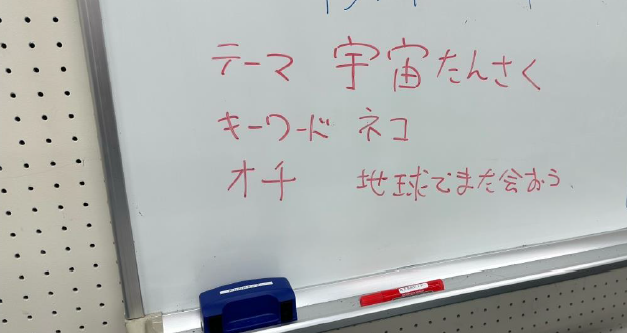 テーマ 宇宙たんさく
キーワード ネコ
オチ 地球でまた会おう.